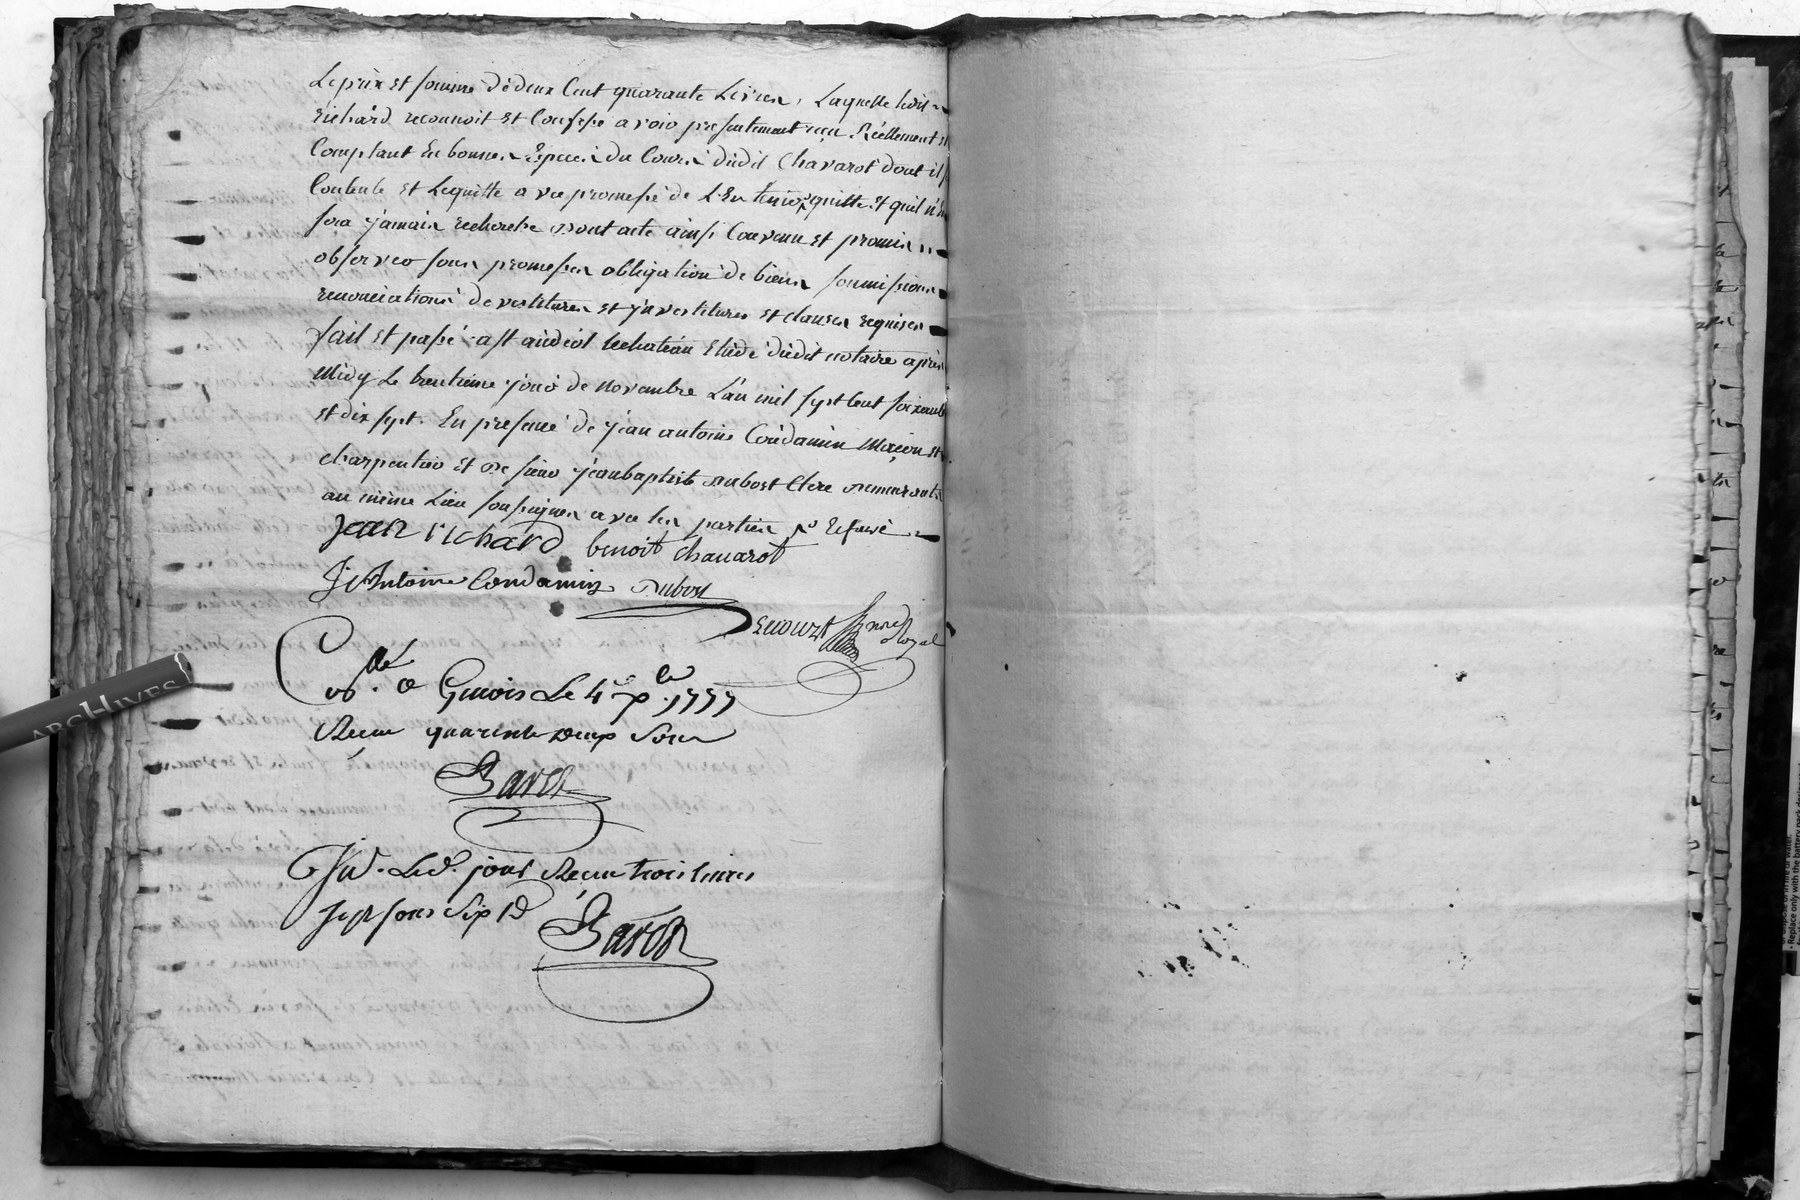 Le prix et somme de deux Cent quarante Livres, Laquelle ledit
richard reconnoit et Confesse avoir presentement reçu Réellement et
Comptant En bonnes Especes du Cours dudit Chavarot dont il se
Contente et Lequitte avec promesse de L'En tenir quitte Et quil n'En
sera jamais recherché Dont acte ainsi Convenu et promis
observer sous promesses obligation de biens soumissions
renonciations de vestitures et jnvestitures et clauses requises
fait et passé a st audéol lechateau Etude dudit notaire après
Midy Le trentieme jour de novembre L'an mil sept Cent soixante
et dix sept. En presence de jean antoine Condamin Maçon et
charpentier et De sieur jean baptiste Dubost Clerc Demeurants
au même Lieu soussignés avec les parties
jean richard benoit chavarot
J Antoine Condamin Dubost
no.re Royal
a Le 4 1777
Recu quarente deux Sous
Barot
Led. jour Recu trois livres
sept sous six d
Barot
ARCHIVES
Replace only with the battery pack